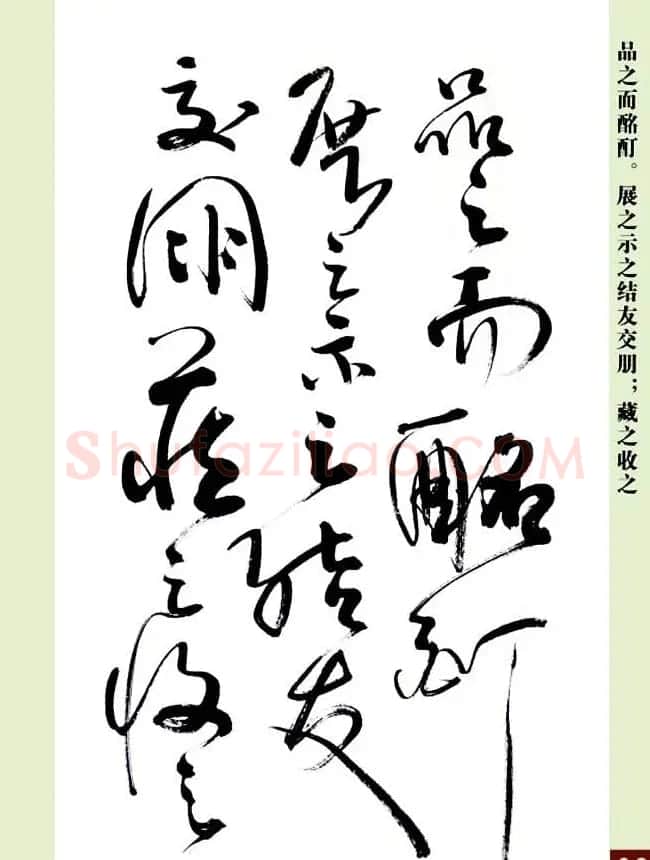 品之而酩酊。展之示之结友交朋；藏之收之
品之而酩酊
展之示之结友
交朋藏之收之
Shufaziliao.COM